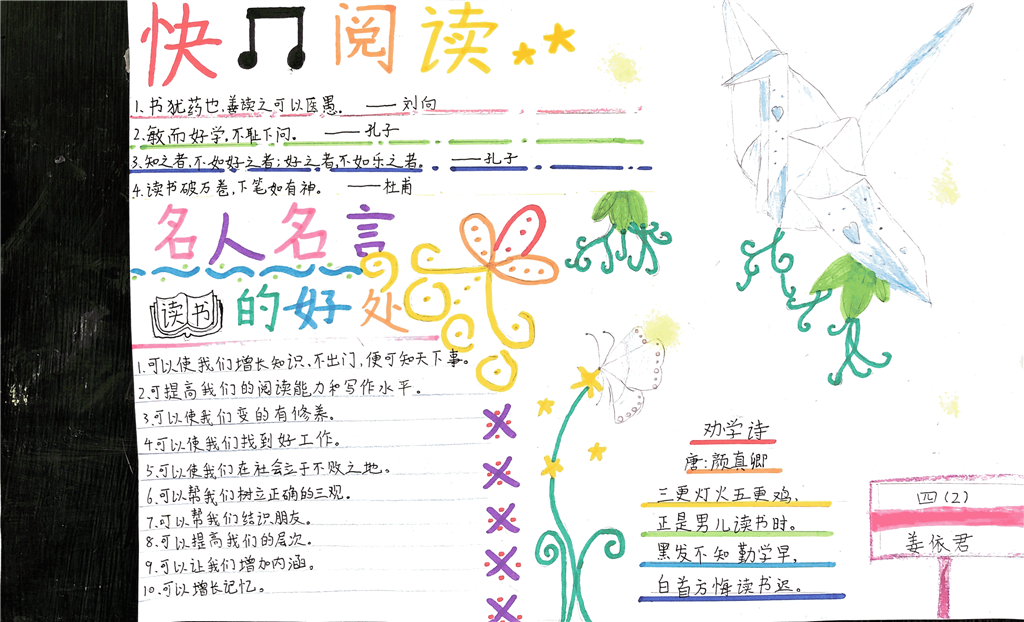 快 阅读
1.书犹药也,善读之可以医愚。 ——刘向
2.敏而好学,不耻下问。 ——孔子
3.知之者,不如好之者;好之者,不如乐之者。 ——孔子
4.读书破万卷,下笔如有神。 ——杜甫
名人名言
读书的好处
1.可以使我们增长知识,不出门,便可知天下事。
2.可提高我们的阅读能力和写作水平。
3.可以使我们变的有修养。
4.可以使我们找到好工作。
5.可以使我们在社会立于不败之地。
6.可以帮我们树立正确的三观。
7.可以帮我们结识朋友。
8.可以提高我们的层次。
9.可以让我们增加内涵。
10.可以增长记忆。
劝学诗
唐:颜真卿
三更灯火五更鸡,
正是男儿读书时。
黑发不知勤学早,
白首方悔读书迟。
四(2)
姜依君